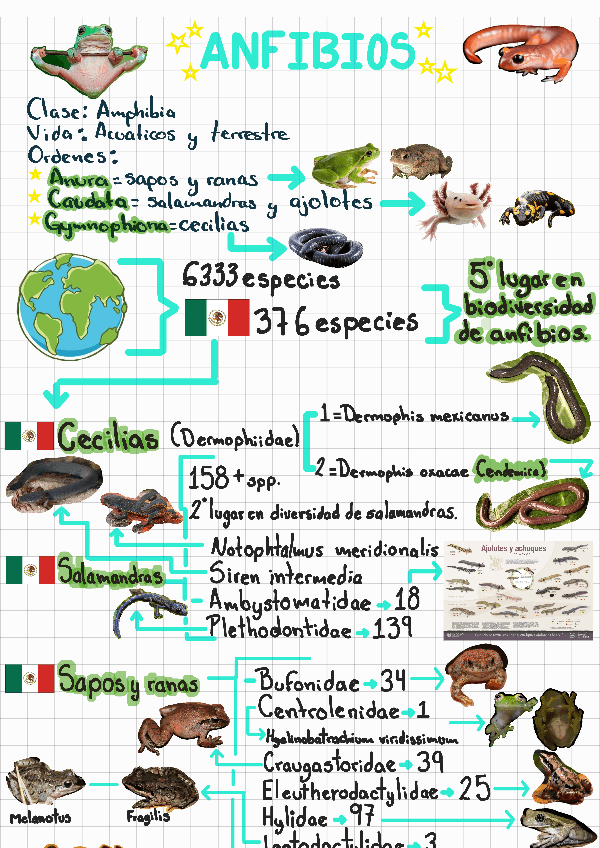 ANFIBIOS
Clase: Amphibia
Vida: Acuáticos y terrestre
Ordenes:
Anura = sapos y ranas
Caudata = salamandras y ajolotes
Gymnophiona = cecilias
6333 especies
376 especies
5° lugar en
biodiversidad
de anfibios.
Cecilias (Dermophiidae)
1 = Dermophis mexicanus
2 = Dermophis oxacae (endemica)
158 + spp.
2° lugar en diversidad de salamandras.
Salamandras
Notophtalmus meridionalis
Siren intermedia
Ambystomatidae → 18
Plethodontidae → 139
Ajolotes y achoques
Sapos y ranas
Bufonidae → 34
Centrolenidae → 1
Hyalinobatrachium viridissimum
Craugastoridae → 39
Eleutherodactylidae → 25
Hylidae → 97
Leptodactylidae → 3
Melanotus
Fragilis